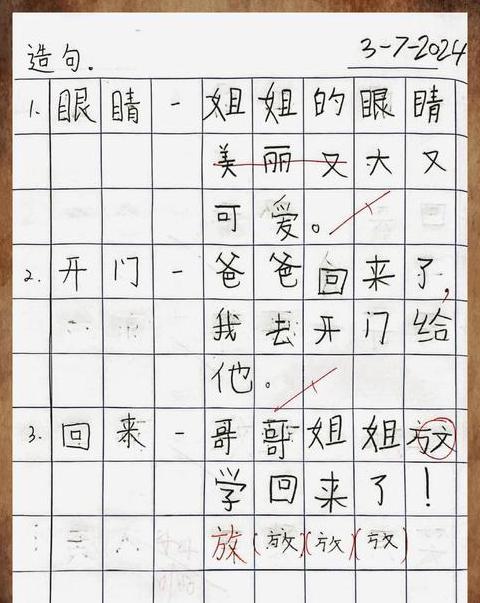 造句. 3-7-2024
1. 眼睛 - 姐姐的眼睛
美丽又大又
可爱。
2. 开门 - 爸爸回来了,
我去开门给
他。
3. 回来 - 哥哥姐姐放
学回来了!
放(放)(放)(放)